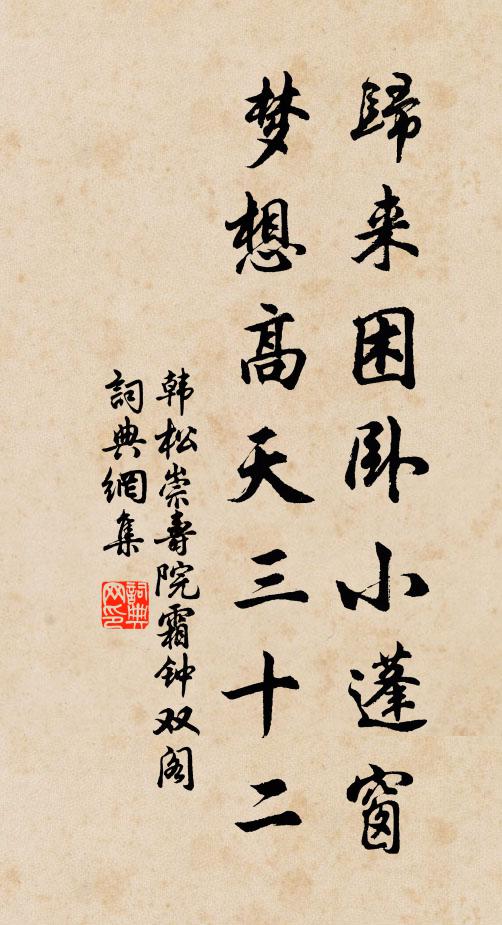 歸来困卧小蓬窗
梦想高天三十二
韩松崇壽院霜钟双阁
詞典網集
詞典网印